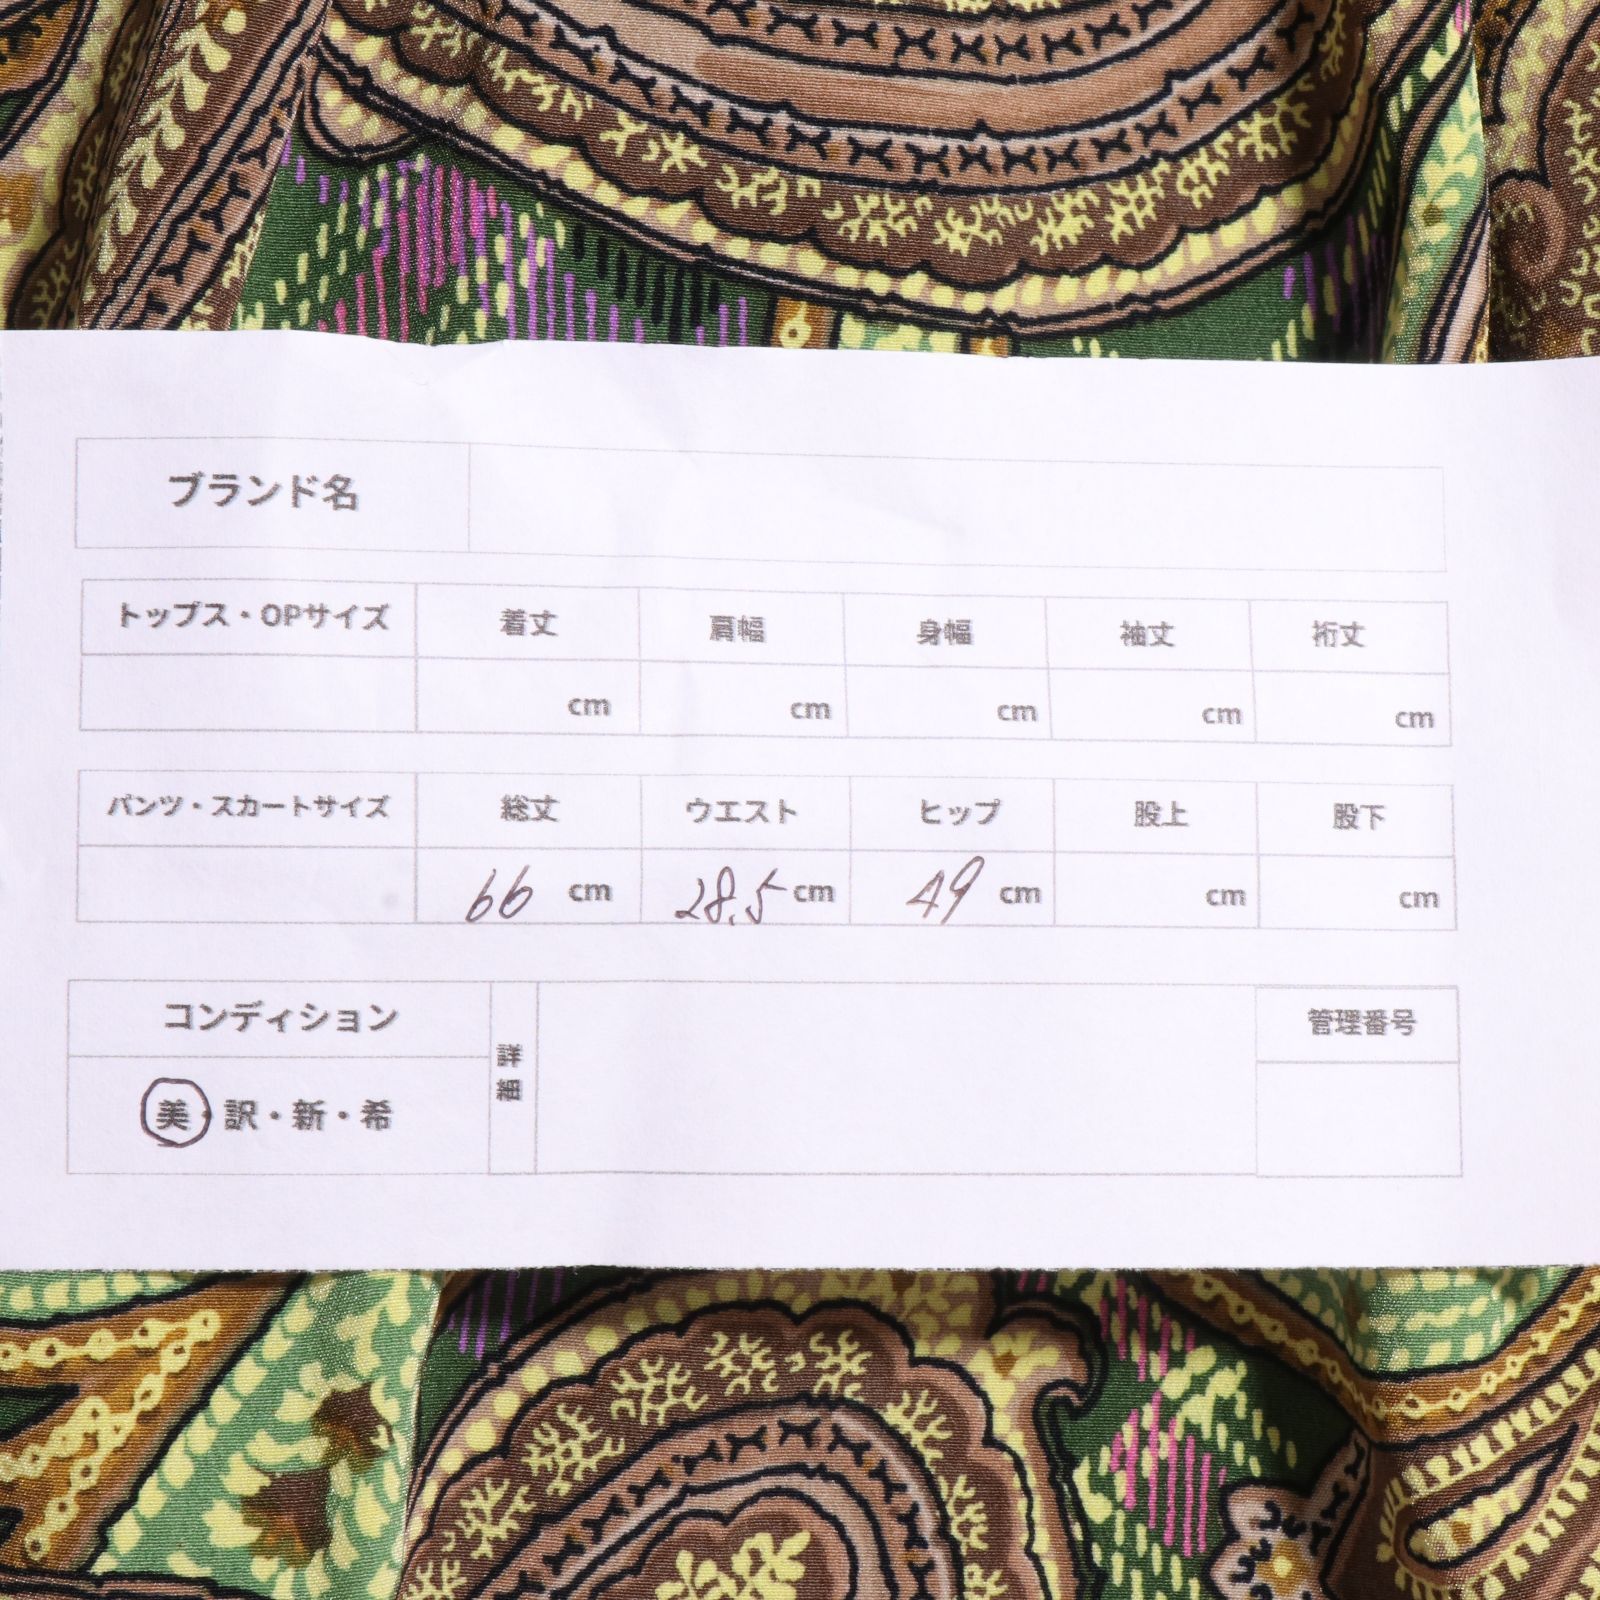 ブランド名
トップス・OPサイズ 着丈 肩幅 身幅 袖丈 裄丈
cm cm cm cm cm
パンツ・スカートサイズ 総丈 ウエスト ヒップ 股上 股下
66 cm 28.5 cm 49 cm cm cm
コンディション 詳細 管理番号
美・訳・新・希